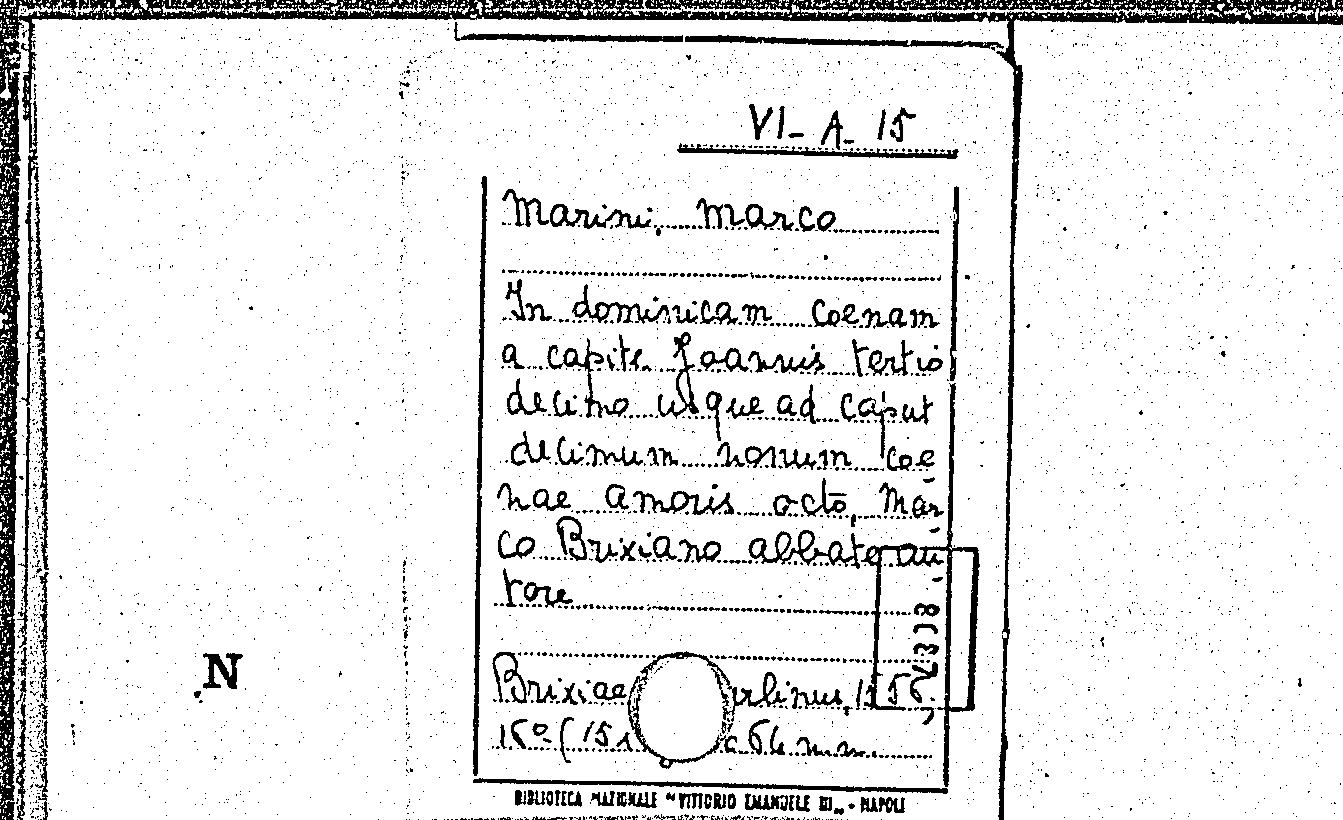 VI- A- 15
Marini, Marco
In dominicam coenam
a capite Joannis tertio
decimo usque ad caput
decimum nonum coe-
nae amoris octo, Mar-
co Brixiano abbate au-
tore
Brixiae
BIBLIOTECA NAZIONALE "VITTORIO EMANUELE III„ - NAPOLI
N